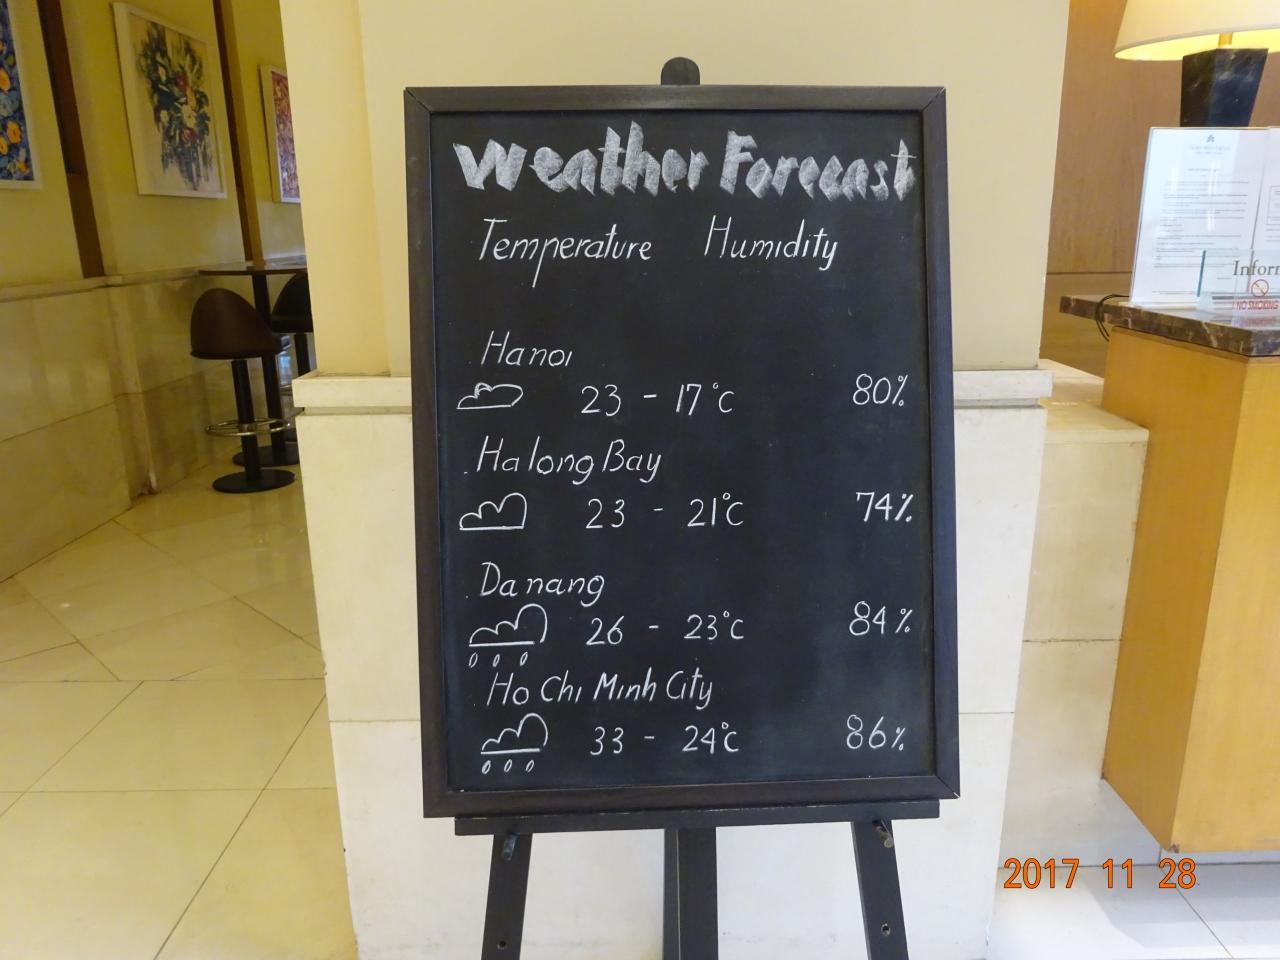 Weather Forecast
Temperature Humidity
Hanoi
23 - 17°C 80%
Halong Bay
23 - 21°C 74%
Danang
26 - 23°C 84%
Ho Chi Minh City
33 - 24°C 86%
NO SMOKING
2017 11 28